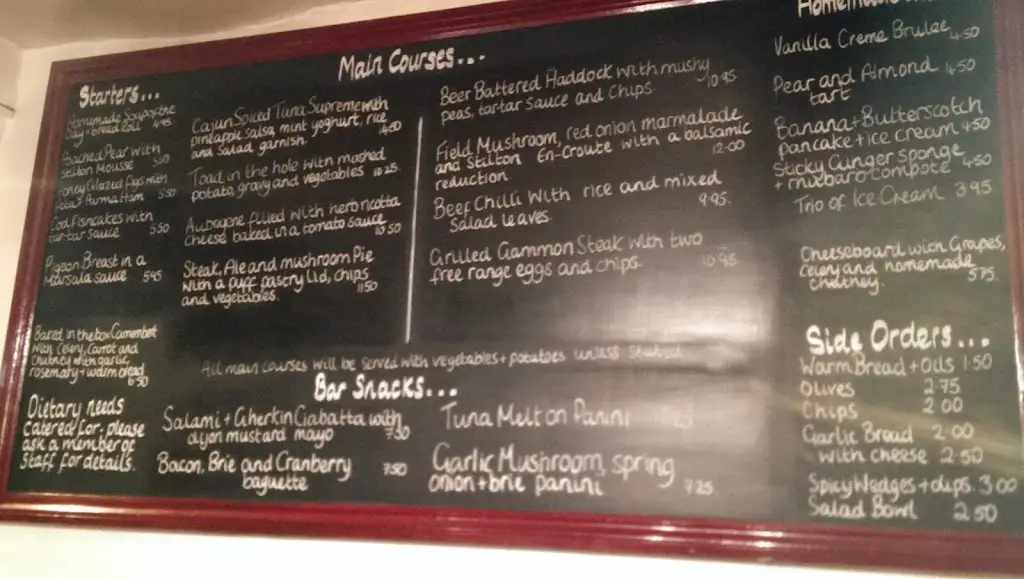 Starters...
Homemade Soup of the
day + bread roll 4.95
Poached Pear with
Stilton Mousse 5.50
Honey Glazed Figs with
Parma Ham 5.50
Cod Fishcakes with
tartar sauce 5.50
Pigeon Breast in a
Marsala sauce 5.95
Baked in the box Camembert
with Celery, Carrot and
Chutney with garlic,
rosemary + warm bread
6.50
Dietary needs
catered for, please
ask a member of
staff for details.
Main Courses...
Cajun Spiced Tuna Supreme with
pineapple salsa, mint yoghurt, rice
and salad garnish. 14.00
Toad in the hole with mashed
potato, gravy and vegetables 10.25
Aubergine filled with herb ricotta
cheese baked in a tomato sauce
10.50
Steak, Ale and mushroom Pie
with a puff pastry lid, chips
and vegetables. 11.50
Beer Battered Haddock with mushy
peas, tartar sauce and chips 10.95
Field Mushroom, red onion marmalade
and Stilton En-Croute with a balsamic
reduction 12.00
Beef Chilli with rice and mixed
Salad leaves. 9.95.
Grilled Gammon Steak with two
free range eggs and chips. 10.95
All main courses will be served with vegetables + potatoes unless stated
Bar Snacks...
Salami + Gherkin Ciabatta with
dijon mustard mayo 7.50
Bacon, Brie and Cranberry 7.50
baguette
Tuna Melt on Panini
Garlic Mushroom, spring
onion + brie panini 7.25
Homemade
Vanilla Creme Brulee 4.50
Pear and Almond 4.50
tart
Banana + Butterscotch
pancake + ice cream 4.50
Sticky Ginger sponge
+ rhubarb compote 4.50
Trio of Ice Cream 3.95
Cheeseboard with Grapes,
celery and homemade
chutney. 5.75
Side Orders...
Warm Bread + Oils 1.50
Olives 2.75
Chips 2.00
Garlic Bread 2.00
with cheese 2.50
Spicy Wedges + dips. 3.00
Salad Bowl 2.50